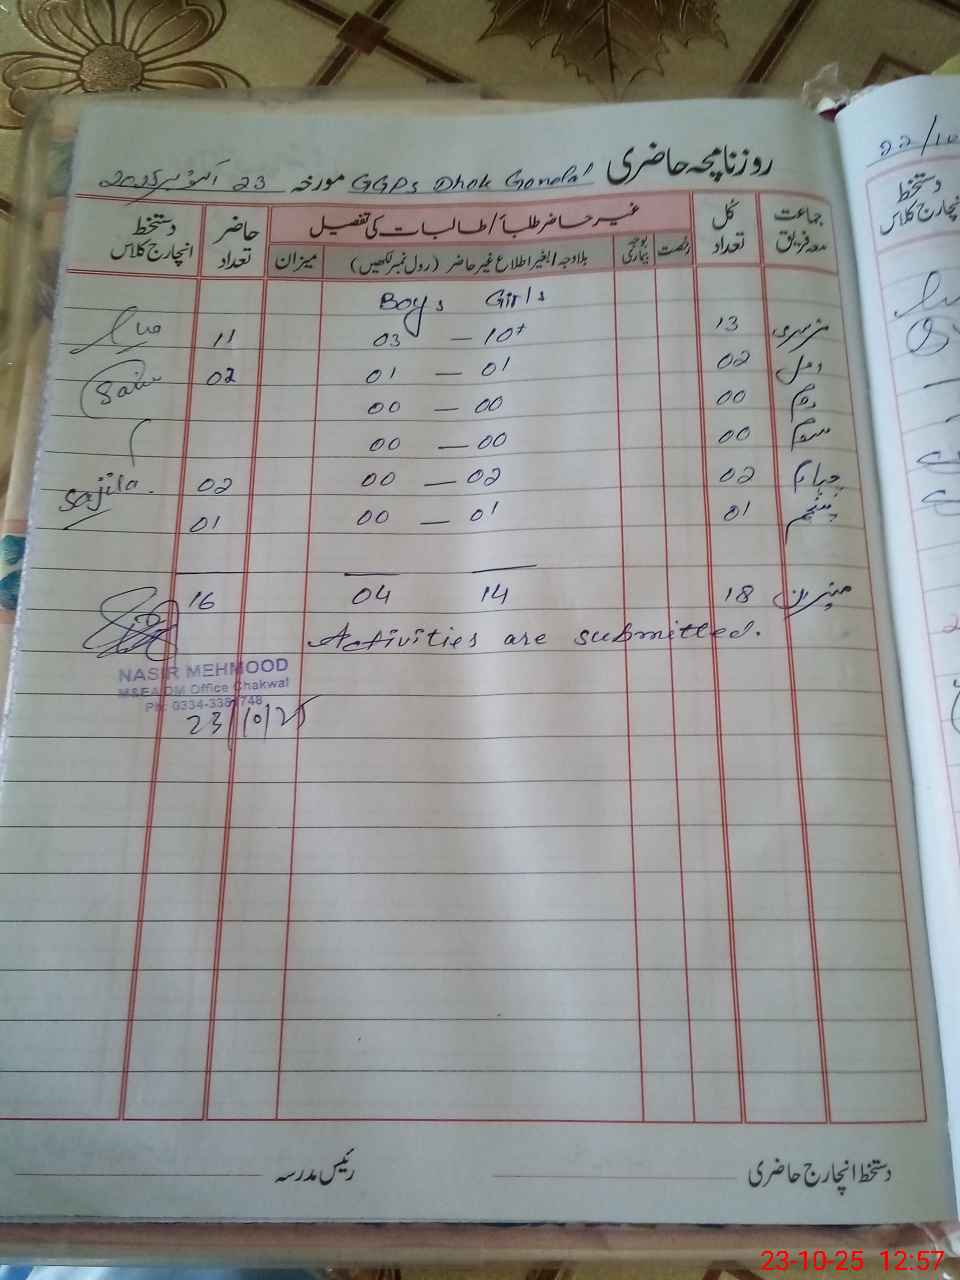 روزنامچہ حاضری GGPS Dhok Gondal مورخہ 23 اکتوبر 2025
جماعت معہ فریق
کل تعداد
غیر حاضر طلبأ / طالبات کی تفصیل
حاضر تعداد
دستخط انچارج کلاس
رخصت
بوجہ بیماری
بلاوجہ / بغیر اطلاع غیر حاضر (رول نمبر لکھیں)
میزان
Boys Girls
نرسری 13 03 — 10+ 11
اول 02 01 — 01 02
دوم 00 00 — 00
سوم 00 00 — 00
چہارم 02 00 — 02 02 Sajila.
پنجم 01 00 — 01 01
میزان 18 04 14 16
Activities are submitted.
NASIR MEHMOOD
M&EA DM Office Chakwal
23/10/25
دستخط انچارج حاضری
رئیس مدرسہ
22/10
دستخط
انچارج کلاس
23-10-25 12:57